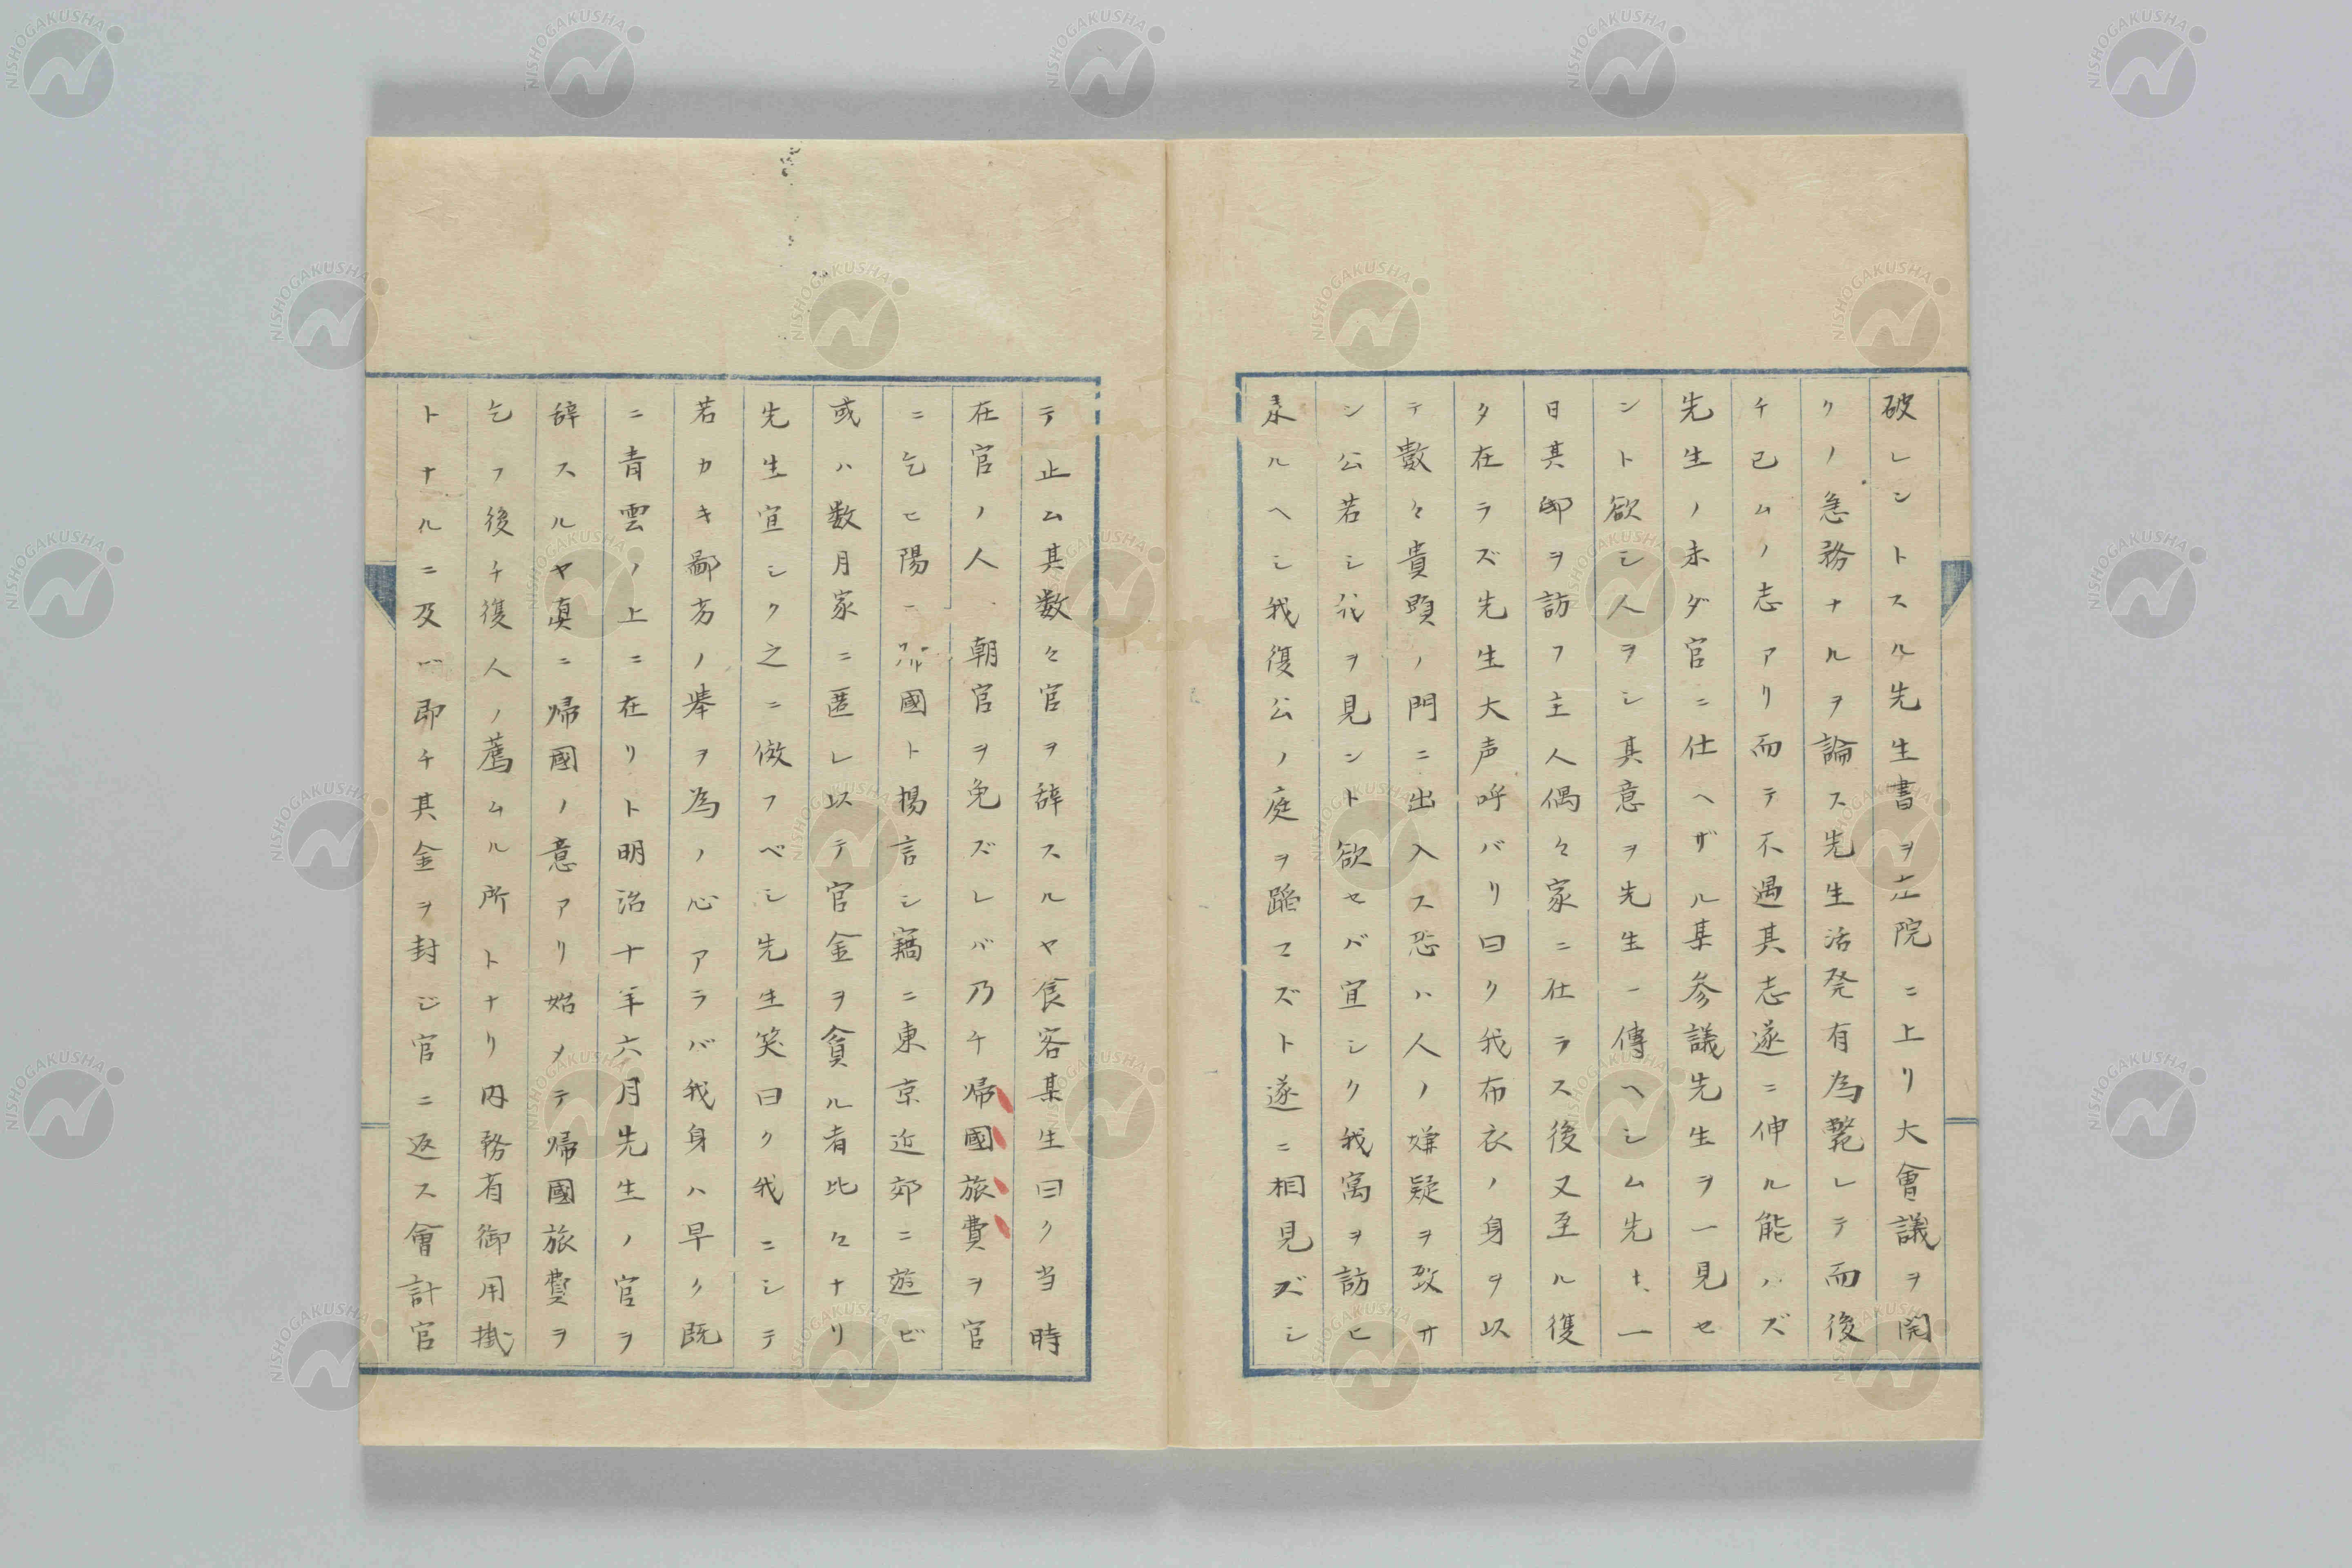 破レントスル先生書ヲ左院ニ上リ大會議ヲ開
クノ急務ナルヲ論ス先生活発有為斃レテ而後
チ已ムノ志アリ而テ不遇其志遂ニ伸ル能ハズ
先生ノ未ダ官ニ仕ヘザル某参議先生ヲ一見セ
ント欲シ人ヲシ其意ヲ先生ニ傳ヘシム先生一
日其邸ヲ訪フ主人偶々家ニ在ラス後又至ル復
タ在ラズ先生大声呼バリ曰ク我布衣ノ身ヲ以
テ數々貴顕ノ門ニ出入ス恐ハ人ノ嫌疑ヲ致サ
ン公若シ我ヲ見ント欲セバ宜シク我寓ヲ訪ヒ
来ルヘシ我復公ノ庭ヲ蹈マズト遂ニ相見ズシ
テ止ム其数々官ヲ辞スルヤ食客某生曰ク当時
在官ノ人朝官ヲ免ズレバ乃チ帰國旅費ヲ官
ニ乞ヒ陽ニ帰國ト揚言シ竊ニ東京近郊ニ遊ビ
或ハ数月家ニ匿レ以テ官金ヲ貪ル者比々ナリ
先生宜シク之ニ倣フベシ先生笑曰ク我ニシテ
若カキ鄙劣ノ挙ヲ為ノ心アラバ我身ハ早ク既
ニ青雲ノ上ニ在リト明治十年六月先生ノ官ヲ
辞スルヤ真ニ帰國ノ意アリ始メテ帰國旅費ヲ
乞フ後チ復人ノ薦ムル所トナリ内務省御用掛
トナルニ及ヒ即チ其金ヲ封ジ官ニ返ス會計官
NISHOGAKUSHA